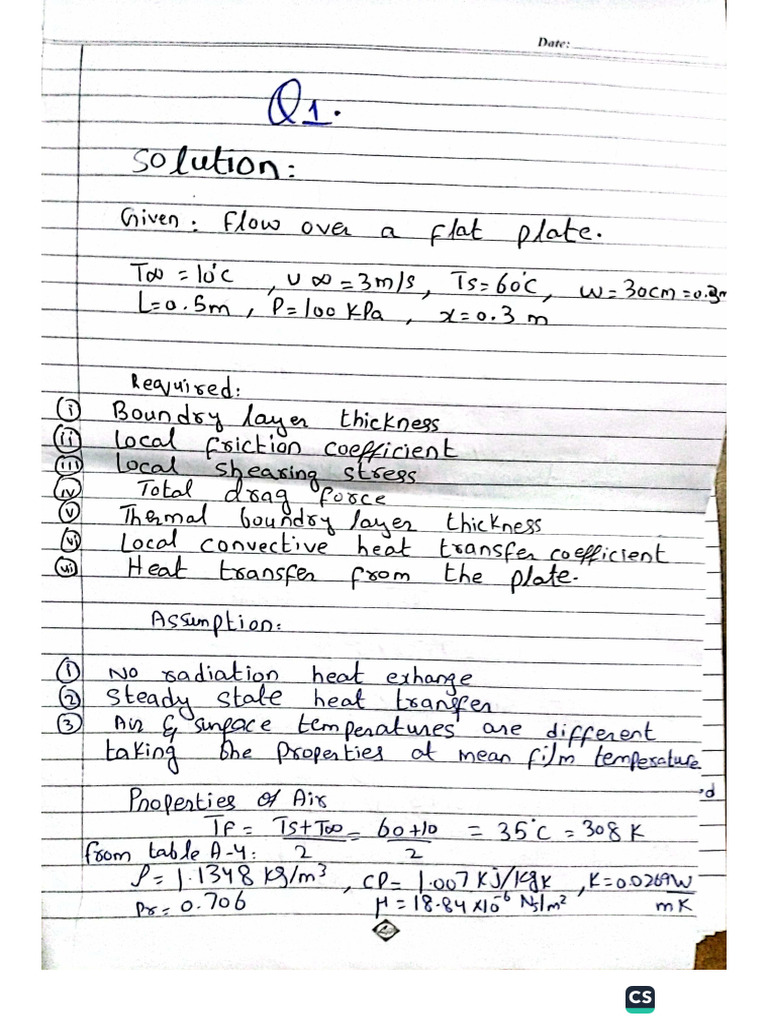 Date:
Q1.
Solution:
Given: Flow over a flat plate.
T∞ = 10°C , U∞ = 3m/s, Ts = 60°C, w = 30cm = 0.3m
L = 0.5m , P = 100 KPa , x = 0.3 m
Required:
(i) Boundry layer thickness
(ii) Local friction coefficient
(iii) Local shearing stress
(iv) Total drag force
(v) Thermal boundry layer thickness
(vi) Local convective heat transfer coefficient
(vii) Heat transfer from the plate.
Assumption:
(1) No radiation heat exhange
(2) Steady state heat transfer
(3) Air & surface temperatures are different
taking the properties at mean film temperature
Properties of Air
TF = Ts+T∞/2 = 60+10/2 = 35°C = 308 K
from table A-4:
ρ = 1.1348 kg/m³ , CP = 1.007 KJ/kgK , K = 0.0269 W/mK
Pr = 0.706 μ = 18.84 x10⁻⁶ Ns/m²
CS